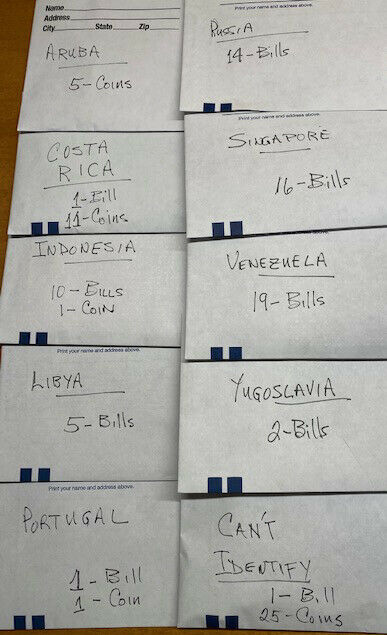 Name
Address
City State Zip
ARUBA
5-Coins
COSTA
RICA
1-Bill
11-Coins
INDONESIA
10-Bills
1-COIN
Print your name and address above.
LIBYA
5-Bills
Print your name and address above.
PORTUGAL
1-Bill
1-Coin
Print your name and address above.
RUSSIA
14-Bills
Print your name and address above.
SINGAPORE
16-Bills
Print your name and address above.
VENEZUELA
19-Bills
YUGOSLAVIA
2-Bills
CAN'T
IDENTIFY
1-Bill
25-Coins